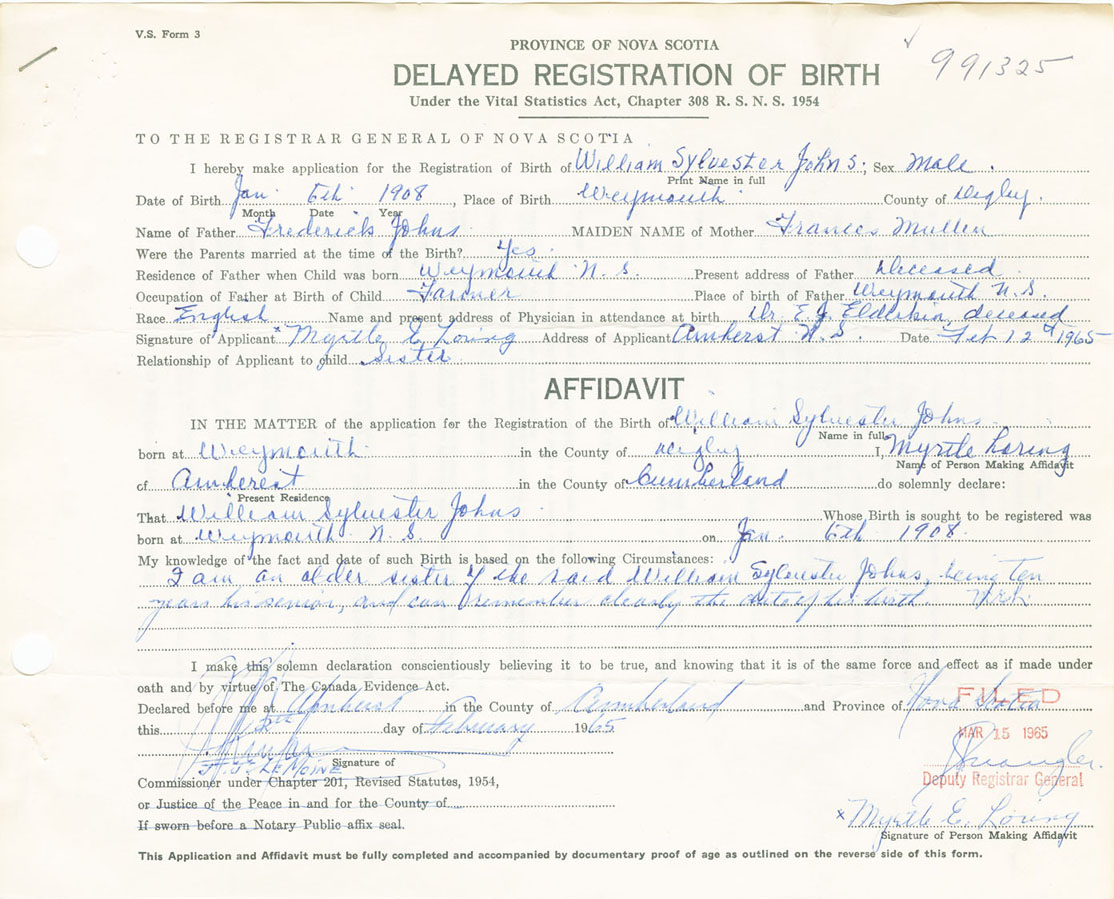 V.S. Form 3
991325
PROVINCE OF NOVA SCOTIA
DELAYED REGISTRATION OF BIRTH
Under the Vital Statistics Act, Chapter 308 R. S. N. S. 1954
TO THE REGISTRAR GENERAL OF NOVA SCOTIA
I hereby make application for the Registration of Birth of William Sylvester Johns; Sex Male.
Print Name in full
Date of Birth Jan 6th 1908, Place of Birth Weymouth County of Digby.
Month Date Year
Name of Father Frederick Johns MAIDEN NAME of Mother Frances Mullen
Were the Parents married at the time of the Birth? Yes
Residence of Father when Child was born Weymouth N. S. Present address of Father Deceased
Occupation of Father at Birth of Child Farmer Place of birth of Father Weymouth N.S.
Race English Name and present address of Physician in attendance at birth Dr. E. J. deceased
Signature of Applicant x Myrtle E. Loring Address of Applicant Amherst N. S. Date Feb 12th 1965
Relationship of Applicant to child Sister
AFFIDAVIT
IN THE MATTER of the application for the Registration of the Birth of William Sylvester Johns
Name in full
born at Weymouth in the County of Digby I, Myrtle Loring
Name of Person Making Affidavit
of Amherst in the County of Cumberland do solemnly declare:
Present Residence
That William Sylvester Johns Whose Birth is sought to be registered was
born at Weymouth N. S. on Jan. 6th 1908.
My knowledge of the fact and date of such Birth is based on the following Circumstances:
I am an older sister of the said William Sylvester Johns, being ten
years his senior, and can remember clearly the date of his birth.
I make this solemn declaration conscientiously believing it to be true, and knowing that it is of the same force and effect as if made under
oath and by virtue of The Canada Evidence Act.
Declared before me at Amherst in the County of Cumberland and Province of Nova Scotia
FILED
this 12th day of February 1965
MAR 15 1965
J. J. LEMOINE
Signature of
Deputy Registrar General
Commissioner under Chapter 201, Revised Statutes, 1954,
or Justice of the Peace in and for the County of
If sworn before a Notary Public affix seal.
x Myrtle E. Loring
Signature of Person Making Affidavit
This Application and Affidavit must be fully completed and accompanied by documentary proof of age as outlined on the reverse side of this form.